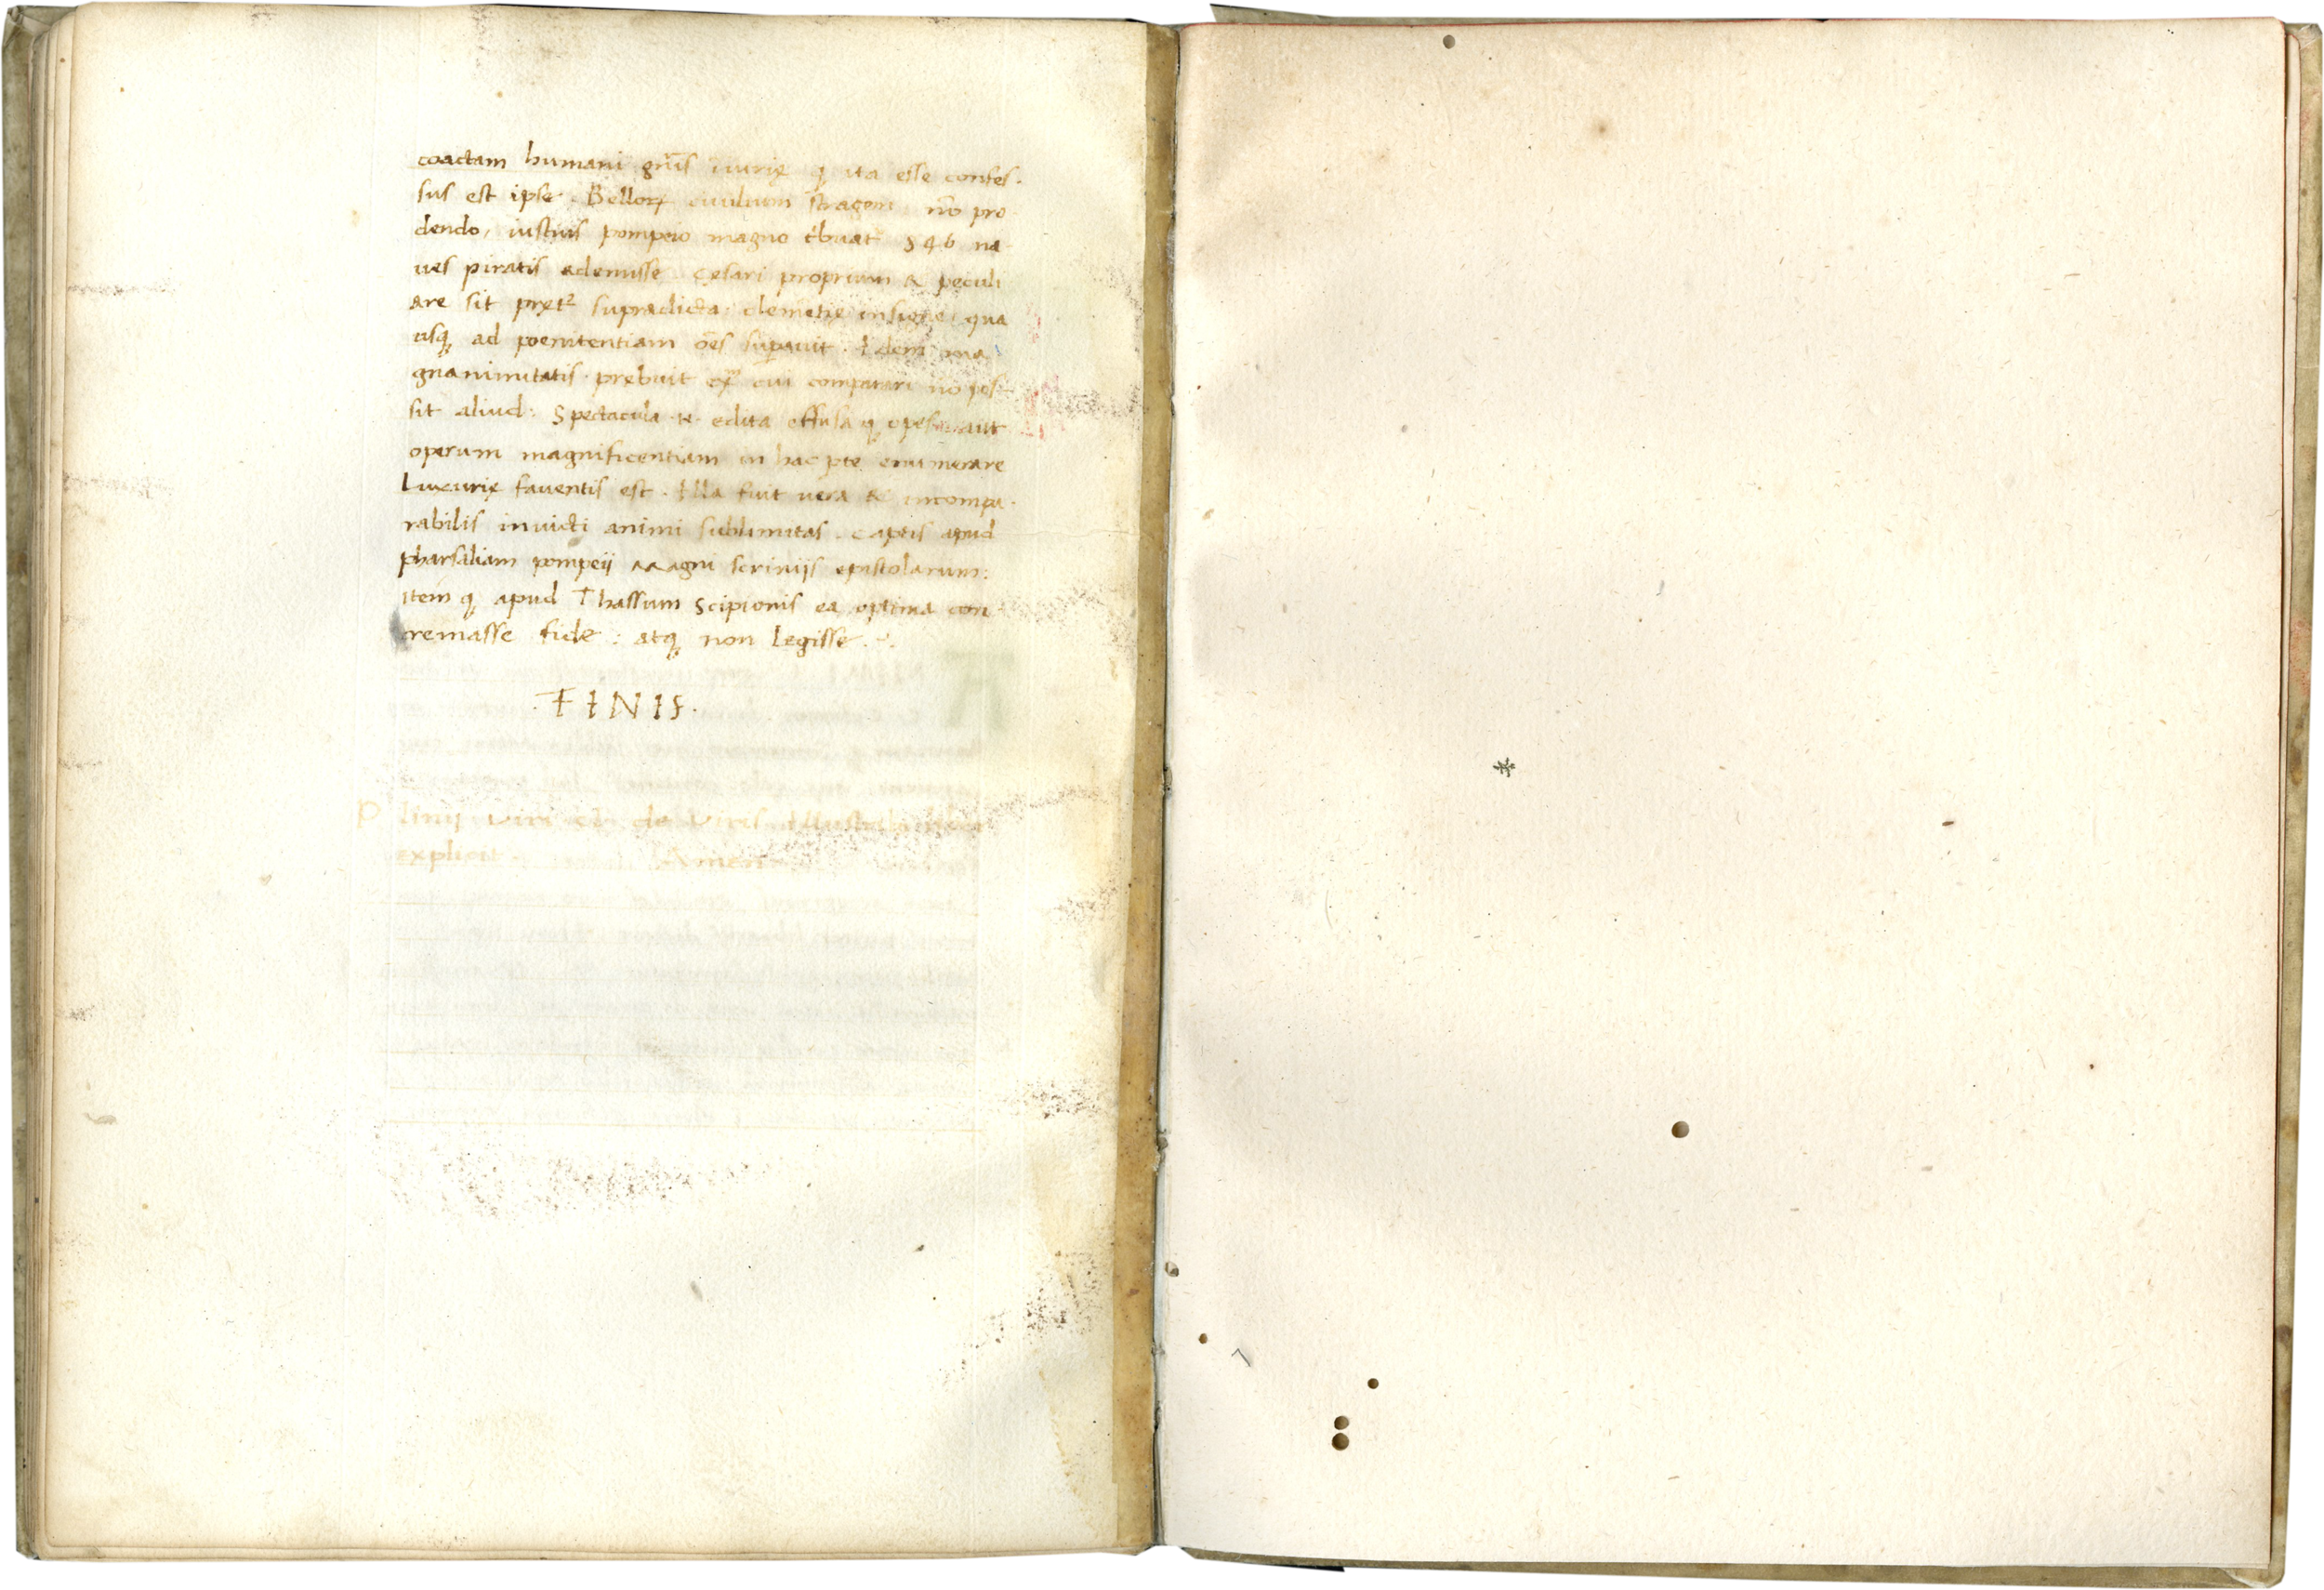 coactam humani gn̄is iniurię q̨ ita esse confes-
sus est ipse. Belloꝝ ciuilium stragem nō pro
dendo, iustius pompeio magno t'buat 846 na
ues piratis ademisse. Cęsari proprium & peculi
are sit pręt² supradicta clemētię insigne qua
usq̨ ad poenitentiam oēs supauit. Idem ma
gnanimitatis prebuit exᵐ cui comparari nō pos-
sit aliud: Spectacula .n. edita effusa q̨ opes aut
operum magnificentiam in hac pte enumerare
Luxurię fauentis est. Illa fuit uera & incompa-
rabilis inuicti animi sublimitas. captis apud
pharsaliam pompeij Magni scrinijs epistolarum:
item q̨ apud Thassum Scipionis ea optima con
cremasse fide: atq̨ non legisse.
.FINIS.
Plinij Viri cl. de Viris Illustribus liber
explicit. Amen